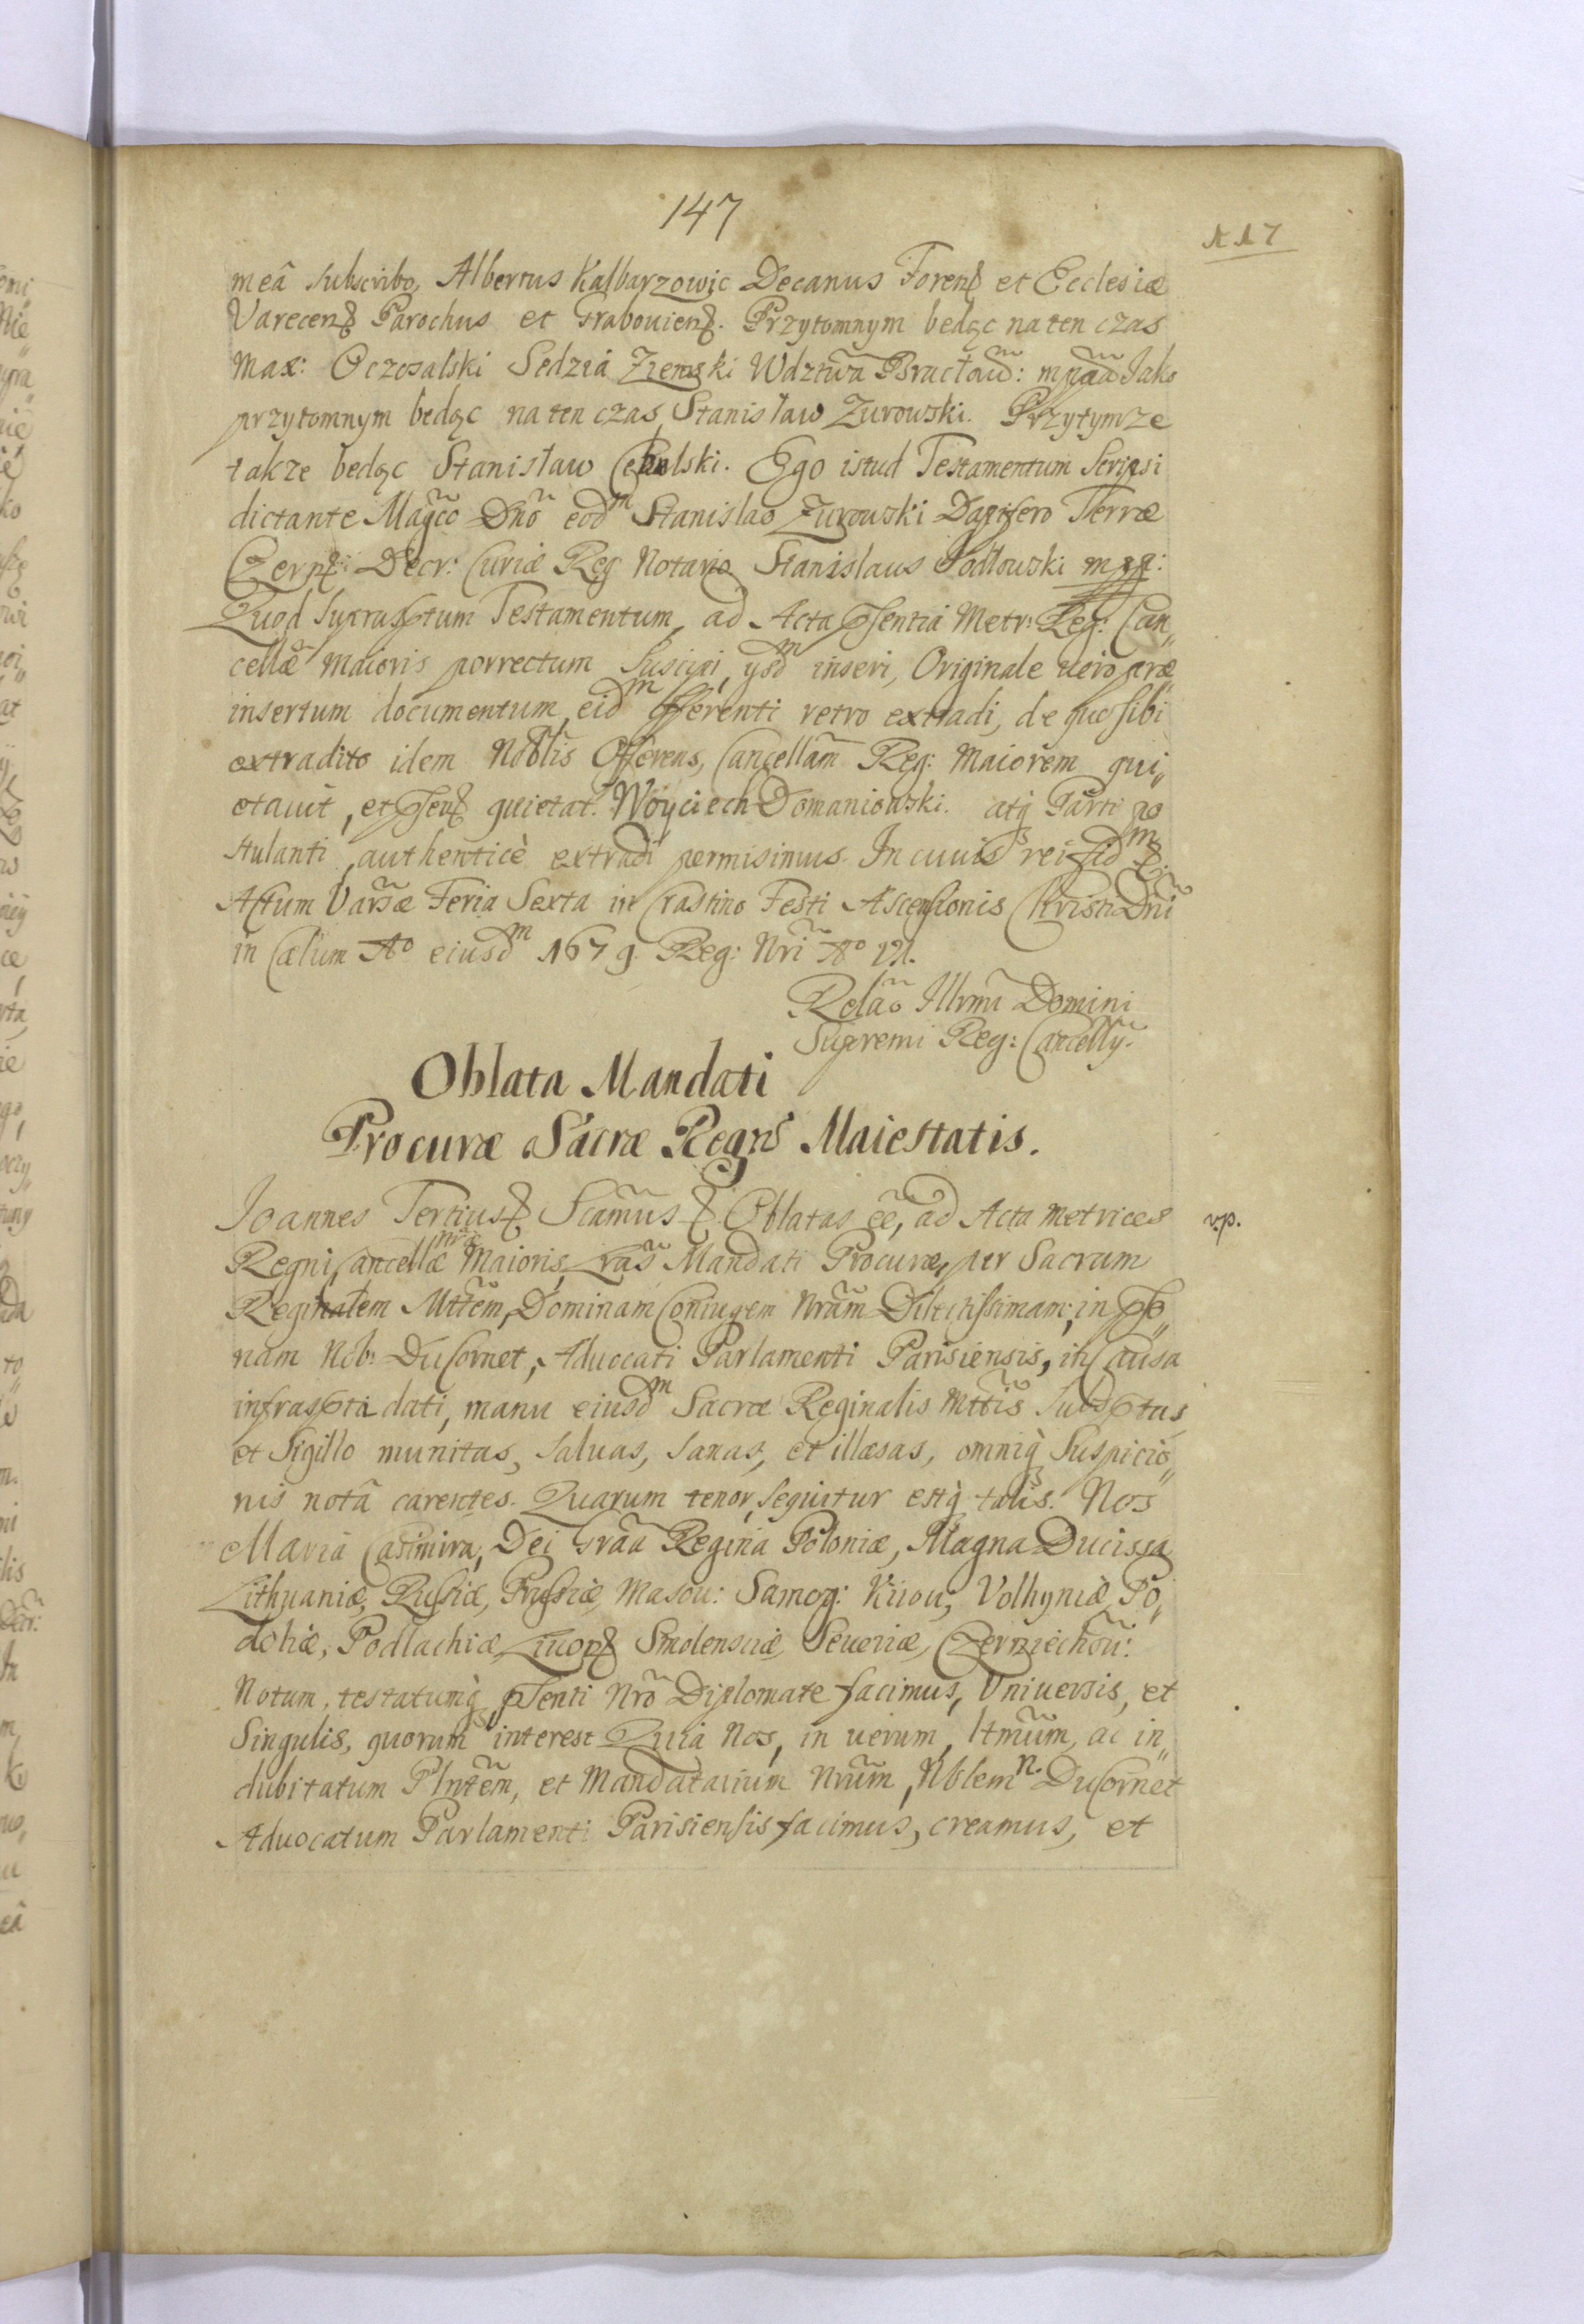 147
meâ Subscribo, Albertus Kalbarzowic Decanus Forenß et Ecclesiæ
Varecenß Parochus et Grabouienß. Przytomnym bedąc na ten czas
Max: Oczosalski Sedzia Ziemski Wdztwa Bracław: mpaa Jako
przytomnym bedąc na ten czas Stanisław Zurowski. Przytymze
takze bedąc Stanisław. Ego istud Testamentum Scripsi
dictante Magco Dno eodm Stanislao Zurowski Dapifero Terræ
Czerß: Decr: Curiæ Reg Notario Stanislaus Podlowski mpp:
Quod suprasptum Testamentum, ad Acta psentia Metr: Reg: Can„
cellæ Maioris porrectum Suscipi, ysdm inseri, Originale uero præ„
insertum documentum, eidm Offerenti retro extradi, de quo sibi
extradito idem Noblis Offerens, Cancellam Reg: Maiorem qui„
etauit, et psenß quietat. Woyciech Domaniowski. atq Parti po
stulanti, authenticè extradi permisimus. In cuius rei fidm &.
Actum Varsæ Feria Sexta in Crastino Festi Ascensionis Christi Dni
in Cælum Ao eiusdm 1679. Reg: Nri Ao VI.
Relao Illrmi Domini
Supremi Reg: Cancellry.
Oblata Mandati
Procuræ Sacræ Regns Maiestatis.
Joannes Tertius &. Scamus &. Oblatas eē, ad Acta Metrices v.p.
Regni Cancellæ nræ Maioris, Lras Mandati Procuræ, per Sacram
Reginalem Mttem, Dominam Coniugem Nram Dilectissimam, in pso„
nam Nob: DuCornet, Aduocati Parlamenti Parisiensis, in Causa
infraspta dati, manu eiusdm Sacræ Reginalis Mttis Subsptas
et Sigillo munitas, saluas, sanas, et illæsas, omniq Suspicio„
nis notâ carentes. Quarum tenor sequitur estq talis. Nos
Maria Casimira, Dei Graa Regina Poloniæ, Magna Ducissa
Lithuaniæ, Russiæ, Prussiæ, Masou: Samog: Kiiou, Volhyniæ, Po„
doliæ, Podlachiæ, Liuonß Smolensciæ Seueriæ, Czerniechou:
Notum, testatumq, psenti Nro Diplomate facimus, Vniuersis, et
Singulis, quorum interest Quia Nos, in uerum, ltmum, ac in„
dubitatum Plntem, et Mandatarium Nrum, Nblem N. DuCornet
Aduocatum Parlamenti Parisiensis facimus, creamus, et